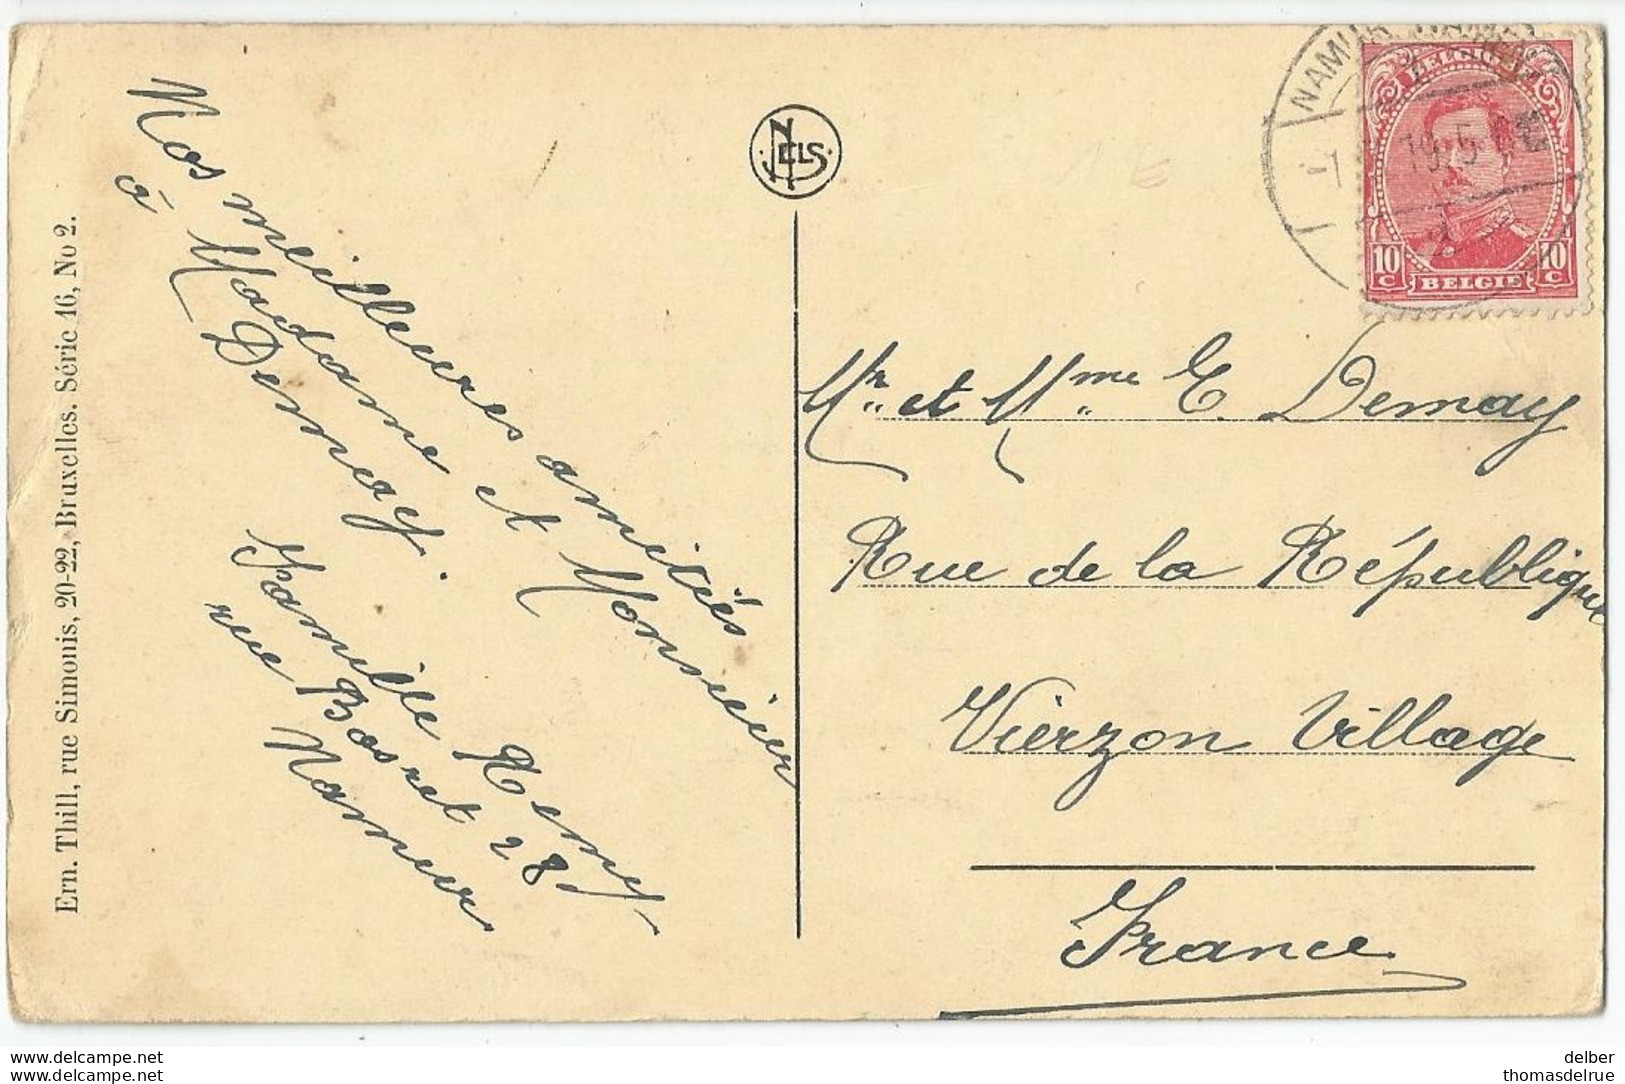 Ern. Thill, rue Simonis, 20-22, Bruxelles. Série 16, No 2.
Nos meilleures amitiés
à Madame et Monsieur
Demay.
Famille Remy
rue Bosret 28
Namur
NELS
NAMUR
19 5
BELGIQUE
10 C BELGIE 10 C
Mr. et Mme E. Demay
Rue de la République
Vierzon Village
France
delcampe.net
delber
delcampe.net
thomasdelrue